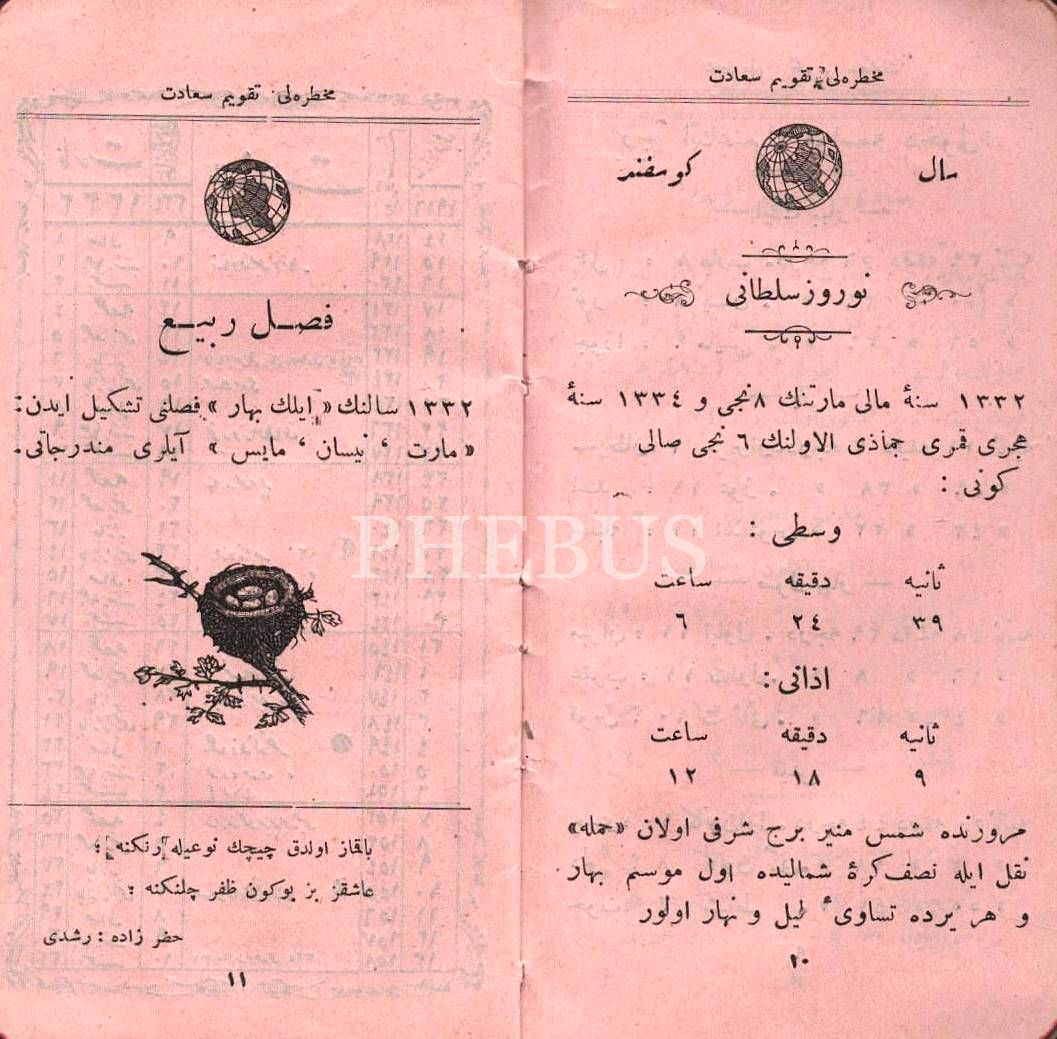 مخطره‌لی تقویم سعادت
سال
كوسفند
نوروز سلطانی
١٣٣٢ سنۀ مالی مارتنك ٨ نجی و ١٣٣٤ سنۀ
هجری قمری جماذی الاولنك ٦ نجی صالی
كونی :
وسطی :
ثانیه دقیقه ساعت
٣٩ ٢٤ ٦
اذانی :
ثانیه دقیقه ساعت
٩ ١٨ ١٢
مروزنده شمس منیر برج شرفی اولان «حمله»
نقل ایله نصف كرۀ شمالیده اول موسم بهار
و هر یرده تساویٔ لیل و نهار اولور
١٠
مخطره‌لی تقویم سعادت
فصل ربیع
١٣٣٢ سالنك «ایلك بهار» فصلنی تشكیل ایدن:
«مارت ، نیسان ، مایس» آیلری مندرجاتی.
PHEBUS
باقاز اولدق چیچك نوعیله رنكنه ؛
عاشقز بز بوكون ظفر چلنكنه :
حضر زاده : رشدی
١١